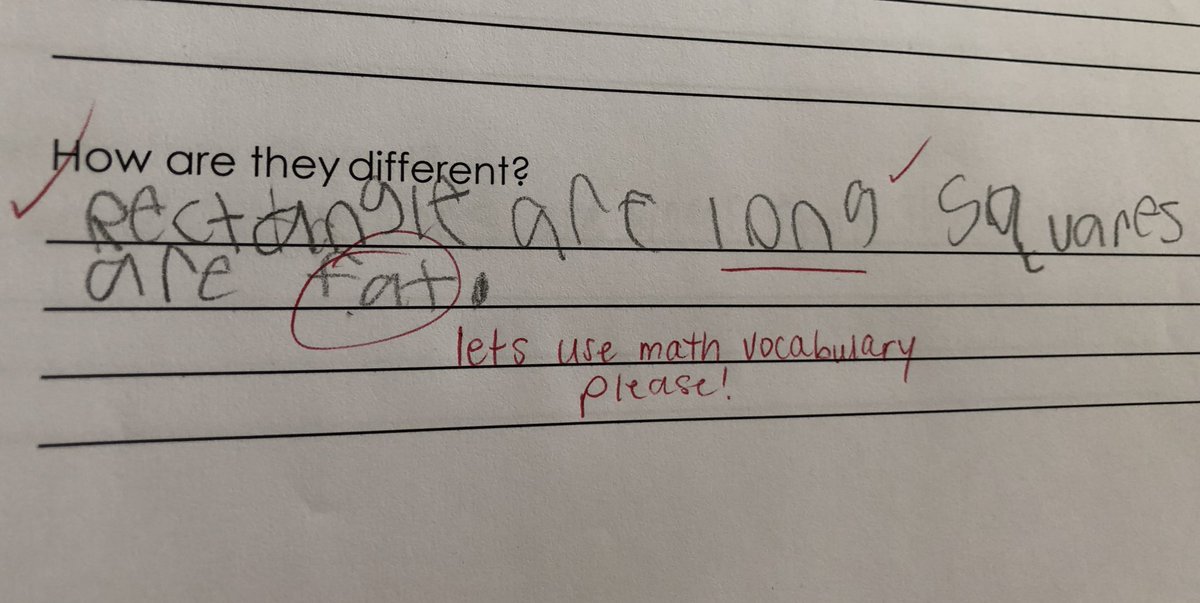 How are they different?
Rectangle are long squares
are fat.
lets use math vocabulary
please!